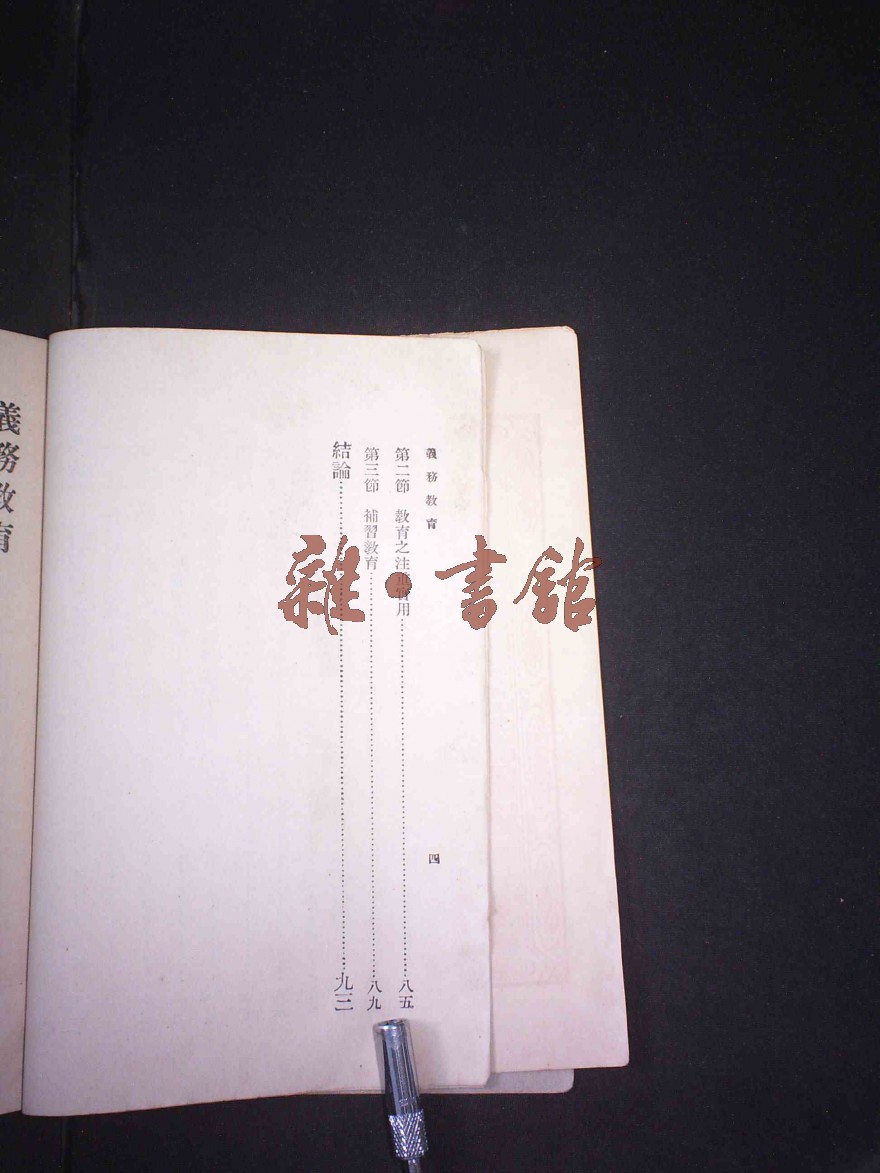 義務教育
四
第二節 教育之注重實用……八五
第三節 補習教育……八九
結論……九三
義務教育
雜·書館